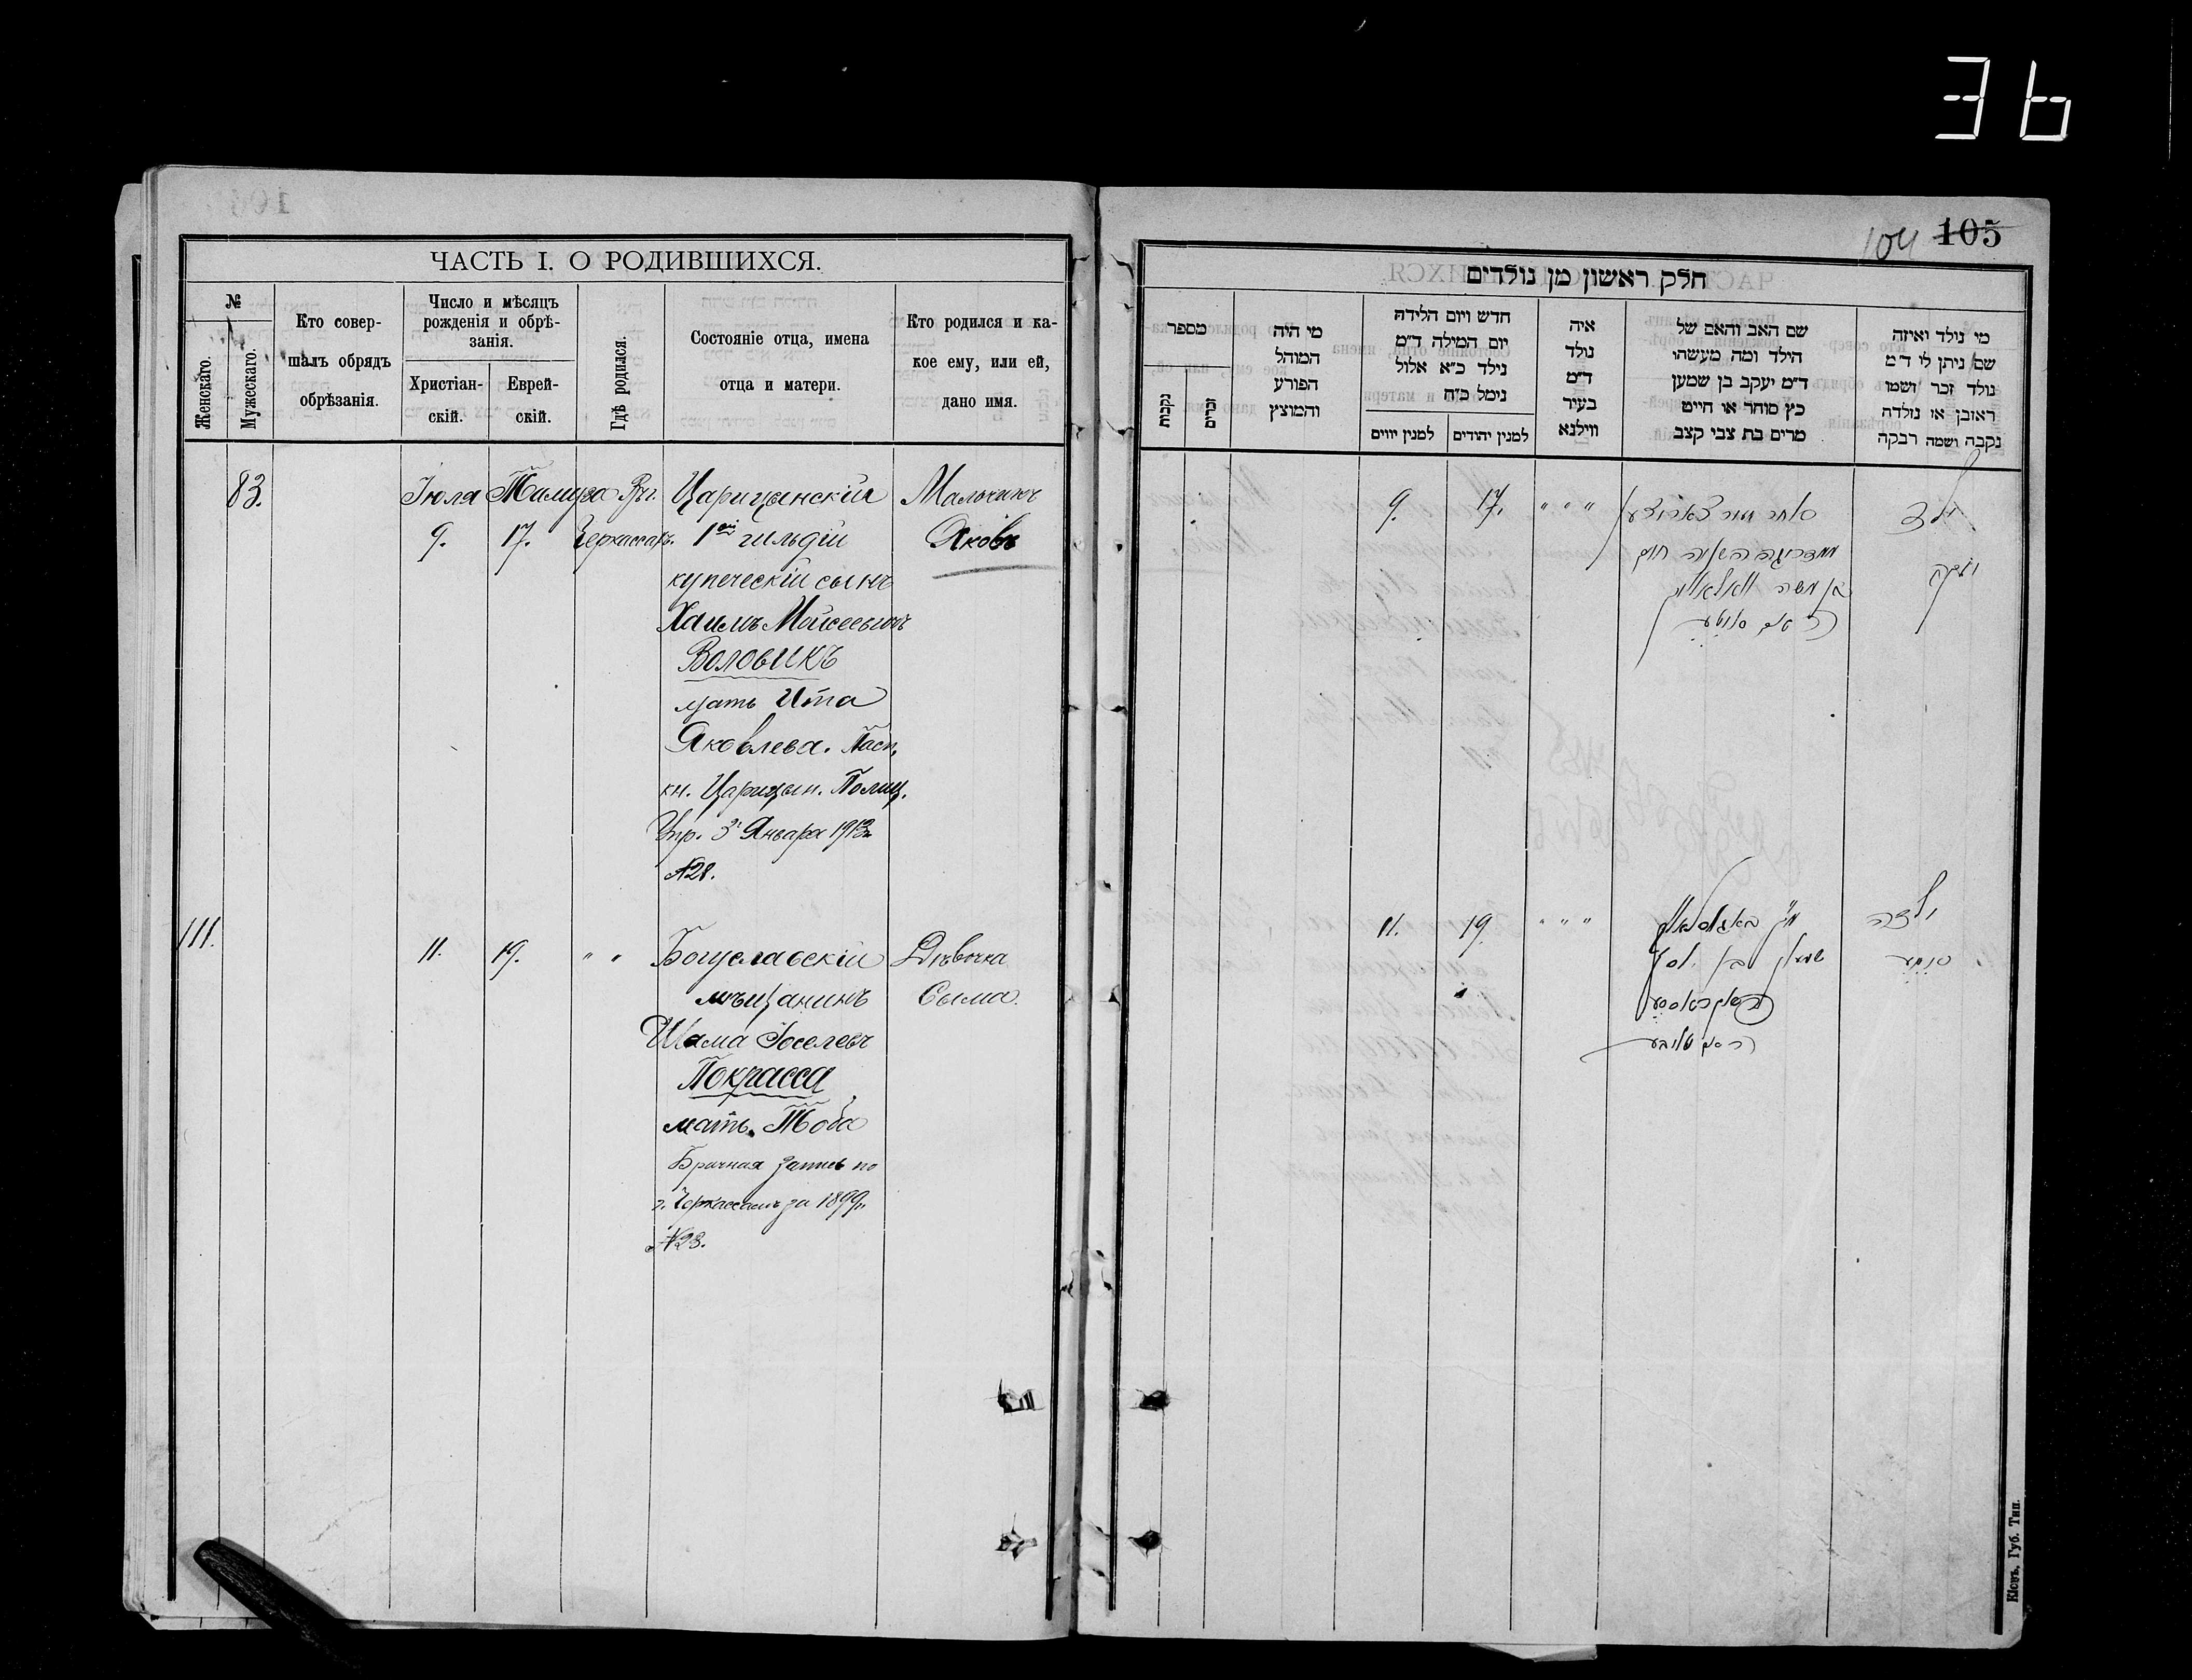 36
104 105
ЧАСТЬ I. О РОДИВШИХСЯ.
№
Женскаго.
Мужескаго.
Кто совер-
шалъ обрядъ
обрѣзанія.
Число и мѣсяцъ
рожденія и обрѣ-
занія.
Христіан-
скій.
Еврей-
скій.
Гдѣ родился.
Состояніе отца, имена
отца и матери.
Кто родился и ка-
кое ему, или ей,
дано имя.
83. Іюля Тамуза Въ г. Царицынскій Мальчикъ
9. 17. Черкассахъ. 1ой гильдіи Яковъ
купеческій сынъ
Хаимъ Мойсеевичъ
Воловикъ
мать Ита
Яковлева. Пасп.
кн. Царицын. Полиц.
Упр. 3 Января 1913
№28.
111. 11. 19. " " Богуславскій Дѣвочка
мѣщанинъ Сыма.
Шама Іоселевъ
Покрасса
мать Тоба
Брачная запись по
г. Черкассамъ за 1899г.
№23.
חלק ראשון מן נולדים
מי נולד ואיזה
שם ניתן לו ד״מ
נולד זכר ושמו
ראובן או נולדה
נקבה ושמה רבקה
שם האב והאם של
הילד ומה מעשהו
ד״מ יעקב בן שמעון
כץ סוחר או חייט
מרים בת צבי קצב
איה
נולד
ד״מ
בעיר
ווילנא
חדש ויום הלידה
יום המילה ד״מ
נילד כ״א אלול
נימל כ״ח
למנין יהודים
למנין יווים
מי היה
המוהל
הפורע
והמוצץ
מספר
זכרים
נקבות
ילד " " " 17. 9.
יעקב
בן משה וואלאוויק
ילדה " " " 19. 11.
סימע
Кіевъ, Губ. Тип.